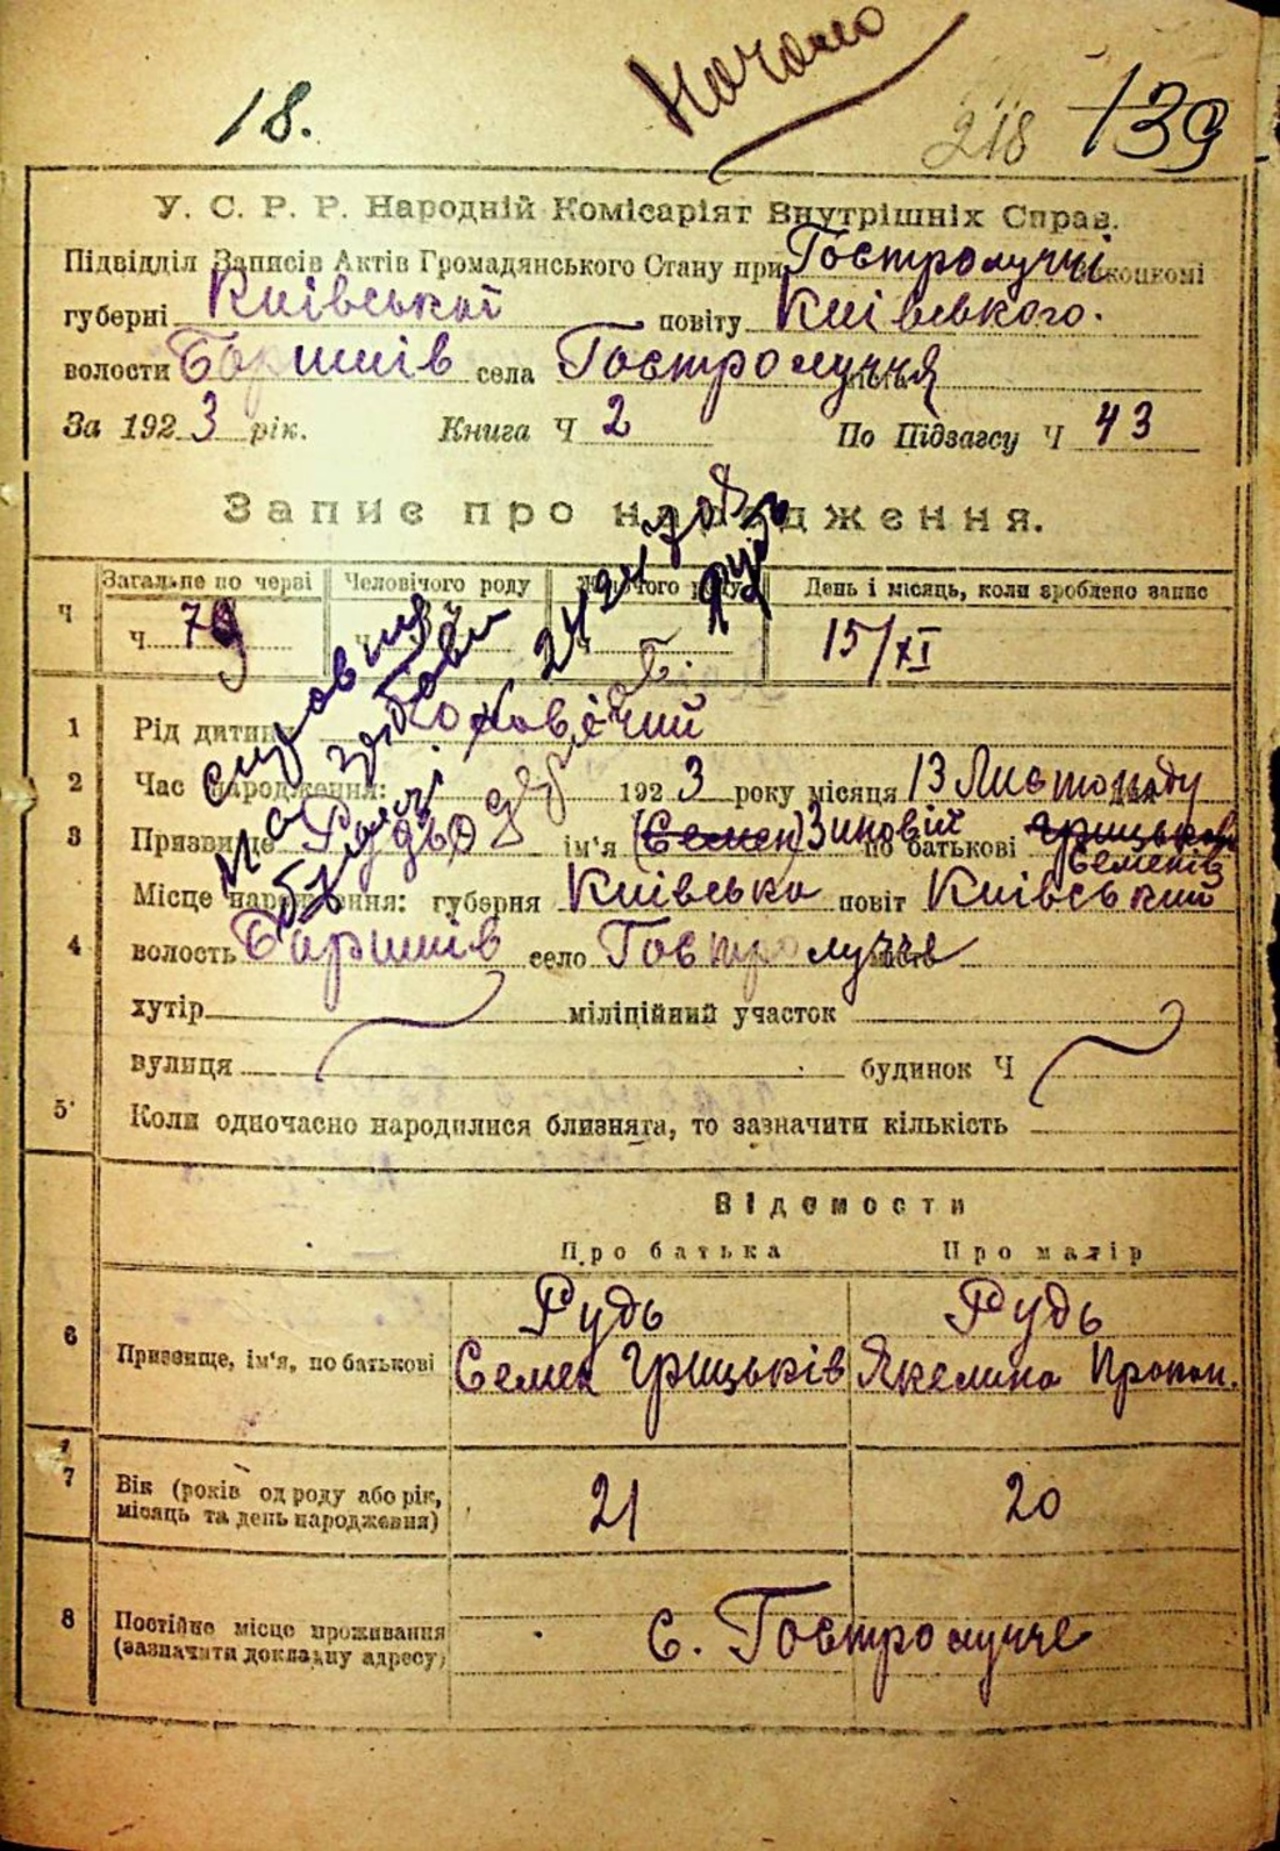 Начало
18.
218 139
У. С. Р. Р. Народній Комісаріят Внутрішніх Справ.
Підвідділ Записів Актів Громадянського Стану при Гостролуччі
губерні Київської повіту Київсвкого.
волости Баришпів села Гостролуччя
За 1923 рік. Книга Ч 2 По Підзагсу Ч 43
Запис про народження.
Загальне по черві Человічого роду Жіночого роду День і місяць, коли зроблено запис
Ч Ч 79 15/XI
1 Рід дитини Чоловічий
2 Час народження: 1923 року місяця 13 Листопаду
3 Призвище Рудь ім'я (Семен) Зиновій по батькові Грицьків Семенів
Місце народження: губерня Київська повіт Київський
4 волость Баришпів село Гостролучче
хутір міліційний участок
вулиця будинок Ч
5 Коли одночасно народилися близнята, то зазначити кількість
Відомости
Про батька Про матір
6 Призвище, ім'я, по батькові Рудь Рудь
Семен Грицьків Якелина Прокоп.
7 Вік (років од роду або рік, місяць та день народження) 21 20
8 Постійне місце проживання (зазначити докладну адресу) с. Гостролучче